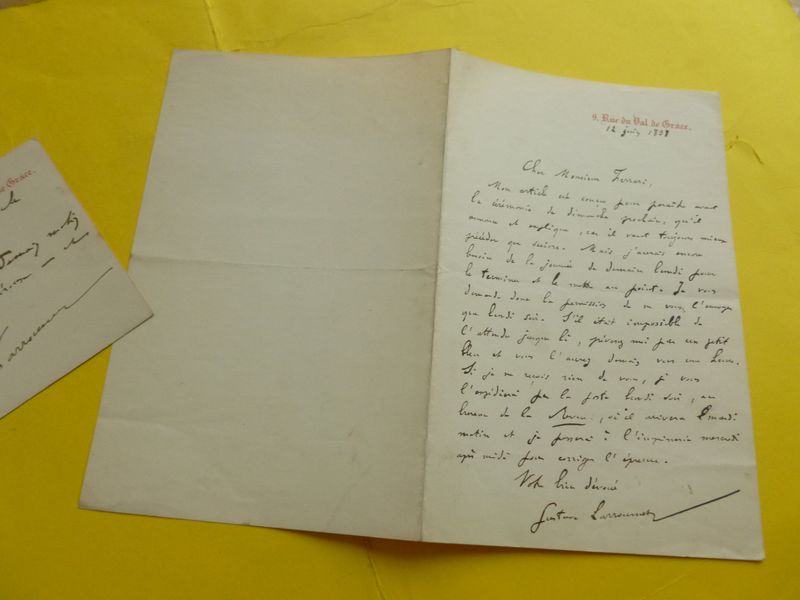 9, Rue du Val de Grâce.
12 juin 1898
Cher Monsieur Ferrari,
Mon article est conçu pour paraître avant
la cérémonie de dimanche prochain, qu'il
annonce et explique, car il vaut toujours mieux
précéder que suivre. Mais j'aurais encore
besoin de la journée de demain lundi pour
le terminer et le mettre au point. Je vous
demande donc la permission de ne vous l'envoyer
que lundi soir. S'il était impossible de
l'attendre jusque là, prévenez moi par un petit
bleu et vous l'aurez demain vers une heure.
Si je ne reçois rien de vous, je vous
l'expédierai par la poste lundi soir, au
bureau de la Revue, où il arrivera mardi
matin et je passerai à l'imprimerie mercredi
après midi pour corriger l'épreuve.
Votre bien dévoué
Gustave Larroumet
de Grâce.
Larroumet